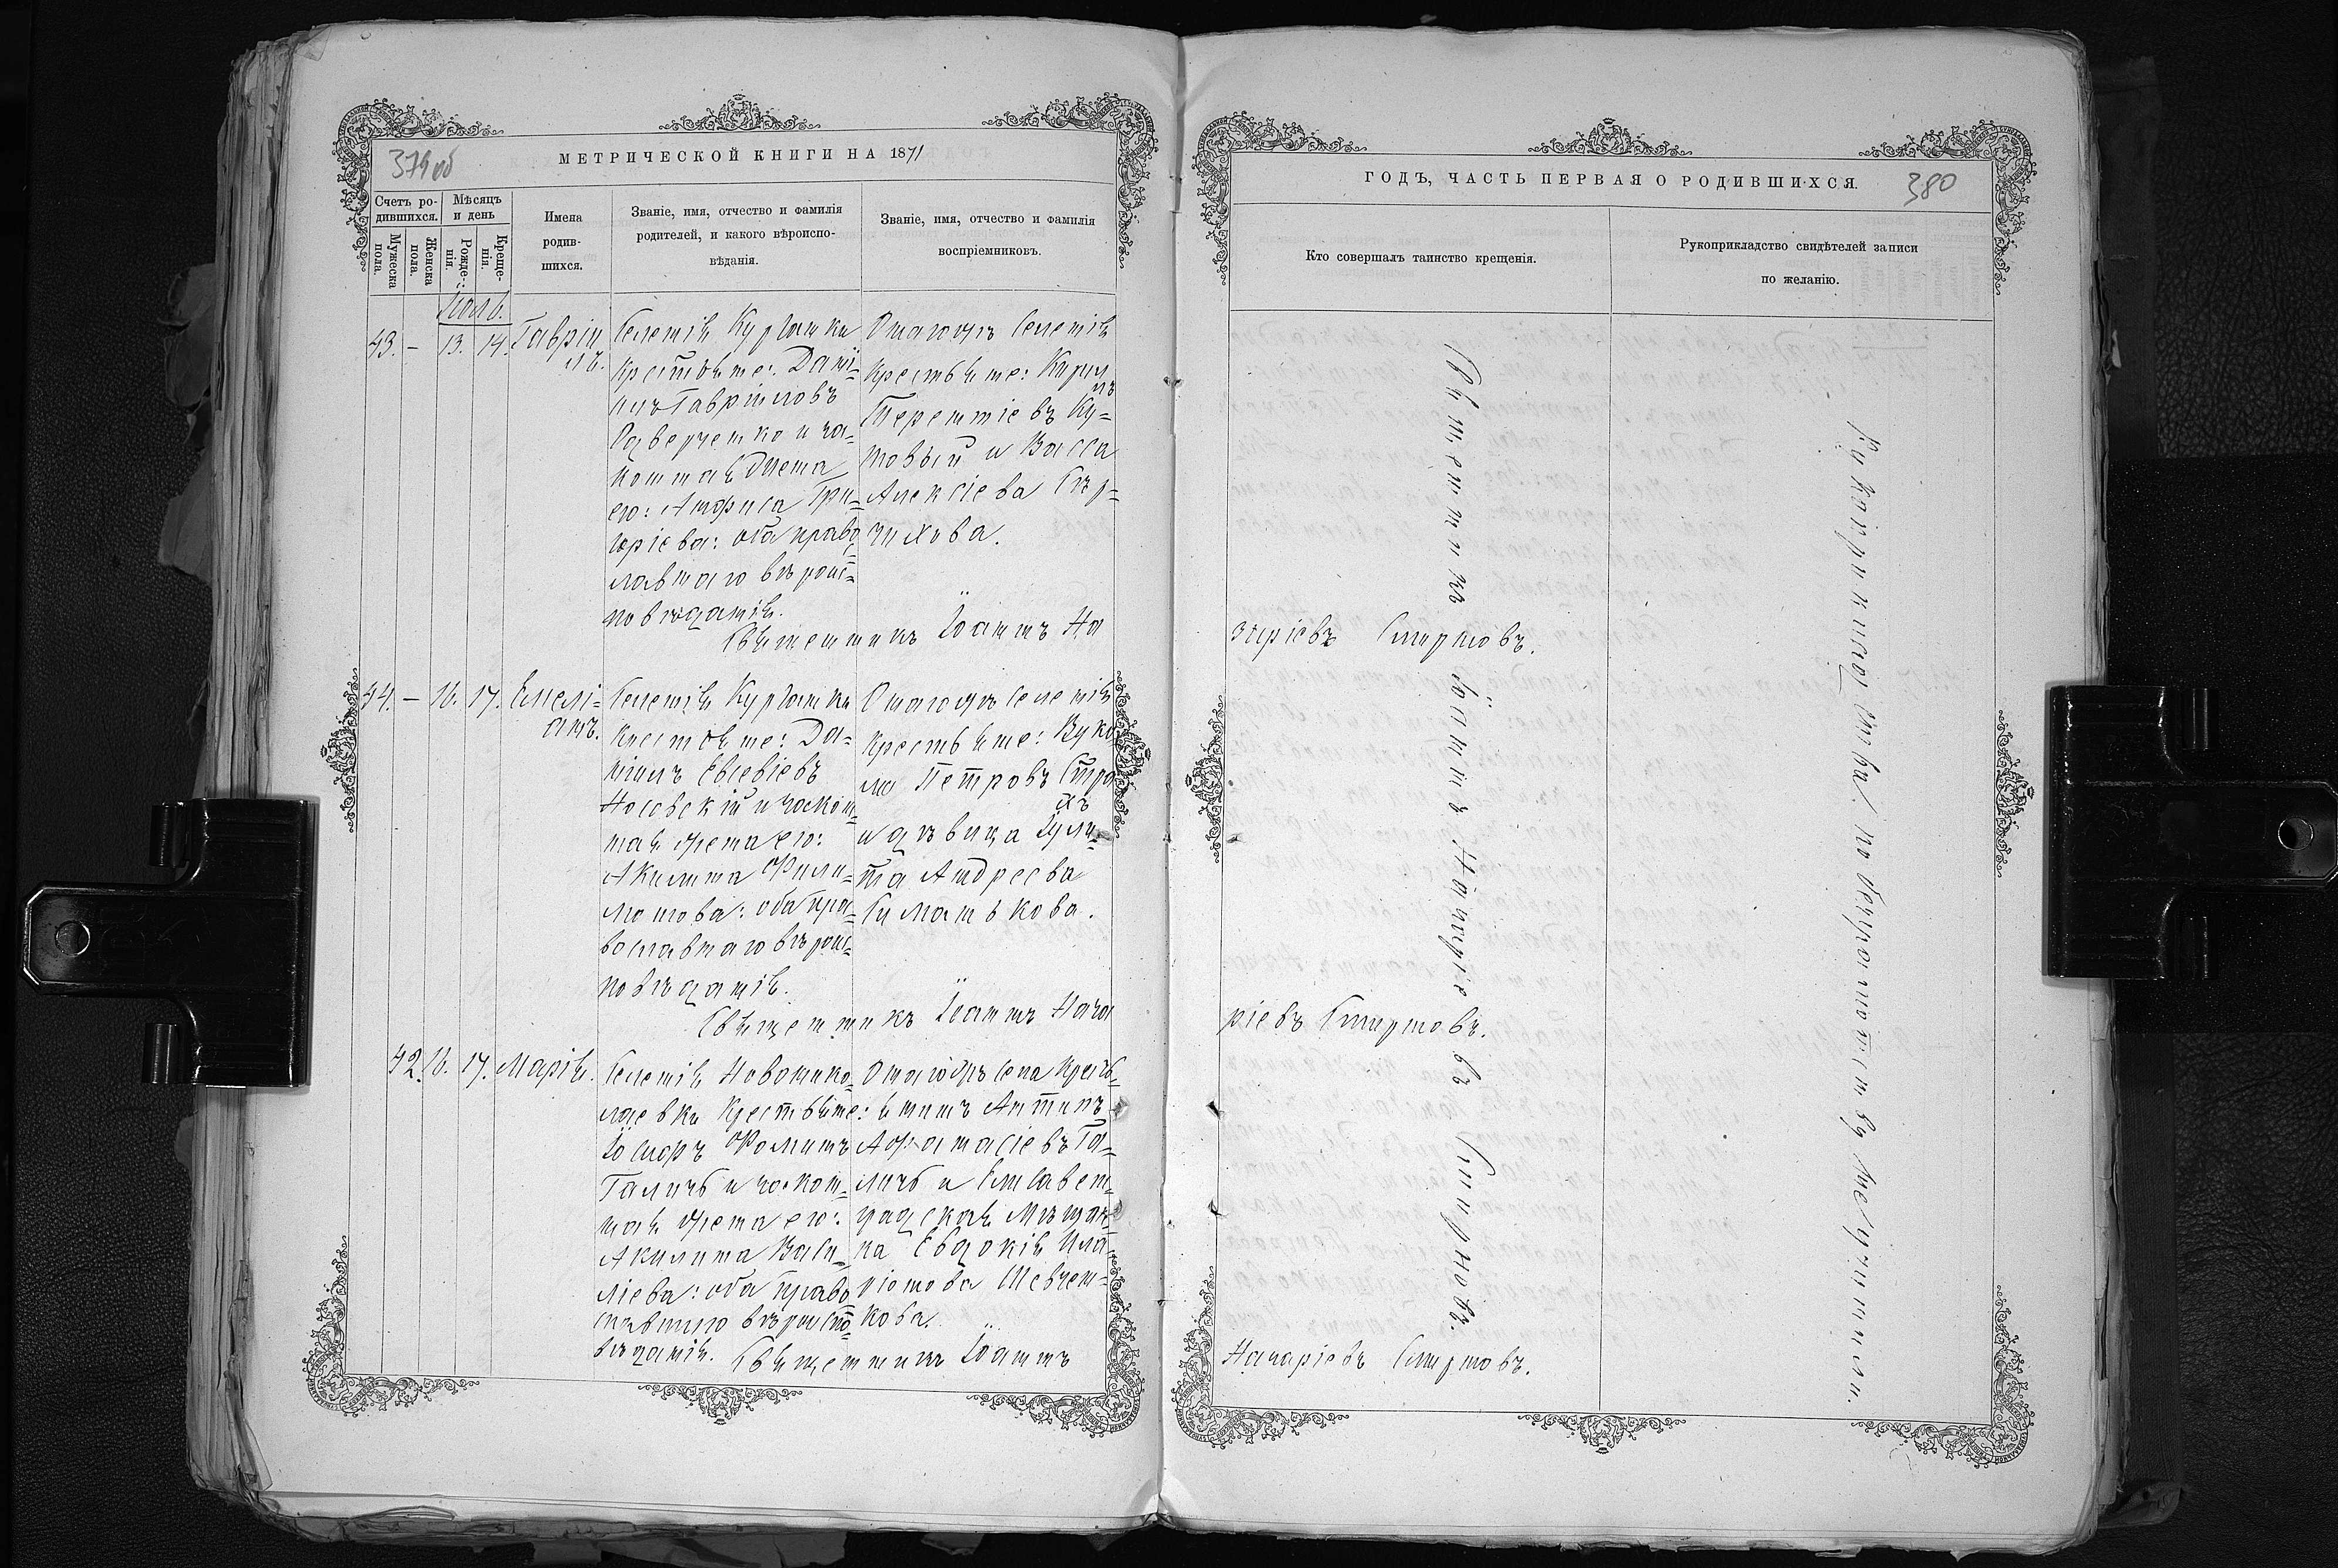 379 об
МЕТРИЧЕСКОЙ КНИГИ НА 1871
Счетъ ро-
дившихся.
Мужеска пола.
Женска пола.
Мѣсяцъ
и день
Рожде-
нія.
Креще-
нія.
Имена
родив-
шихся.
Званіе, имя, отчество и фамилія
родителей, и какого вѣроиспо-
вѣданія.
Званіе, имя, отчество и фамилія
воспріемниковъ.
Іюль.
43. — 13. 14. Гавріи
лъ.
Селенія Кургатки
Крестьяне: Дані-
илъ Гавріиловъ
и за-
конная жена
его: Анфиса Гри-
горіева: оба право
славнаго вѣроис-
повѣданія.
Тогожъ Селенія
Крестьяне: Кирил
лъ
Терентіевъ Ку-
товый и Васса
Алексіева
Священникъ Іоаннъ На
44. — 16. 17. Емелі-
анъ.
Селенія Кургатки
Крестьяне: Да-
ніилъ Евсевіевъ
Носовскій и закон-
ная жена его:
Акилина Фили-
монова: оба пра-
вославнаго вѣроис-
повѣданія.
Тогожъ Селенія
Крестьяне: Вуко
лъ Петровъ Стра
хъ
и дѣвица Іули-
та Андреева
Симанькова.
Священникъ Іоаннъ Наза
42. 16. 17. Марія.
Селенія Новонико-
лаевки Крестьяне:
Іосифъ Фоминъ
Галичъ и закон-
ная жена его:
Акилина Васи-
ліева: оба право
славнаго вѣроиспо-
вѣданія.
Тогожъ Села Кресть-
янинъ Антипъ
Афанасіевъ Га-
личъ и Елисавет-
градская Мѣщан-
ка Евдокія Ила-
ріонова Шевчен-
кова.
Священникъ Іоаннъ
ГОДЪ, ЧАСТЬ ПЕРВАЯ О РОДИВШИХСЯ.
380
Кто совершалъ таинство крещенія.
Рукоприкладство свидѣтелей записи
по желанію.
заріевъ Смирновъ.
ріевъ Смирновъ.
Назаріевъ Смирновъ.
Священникъ Іоаннъ Назаріевъ Смирновъ.
Рукоприкладства: по безграмотству не учинили.